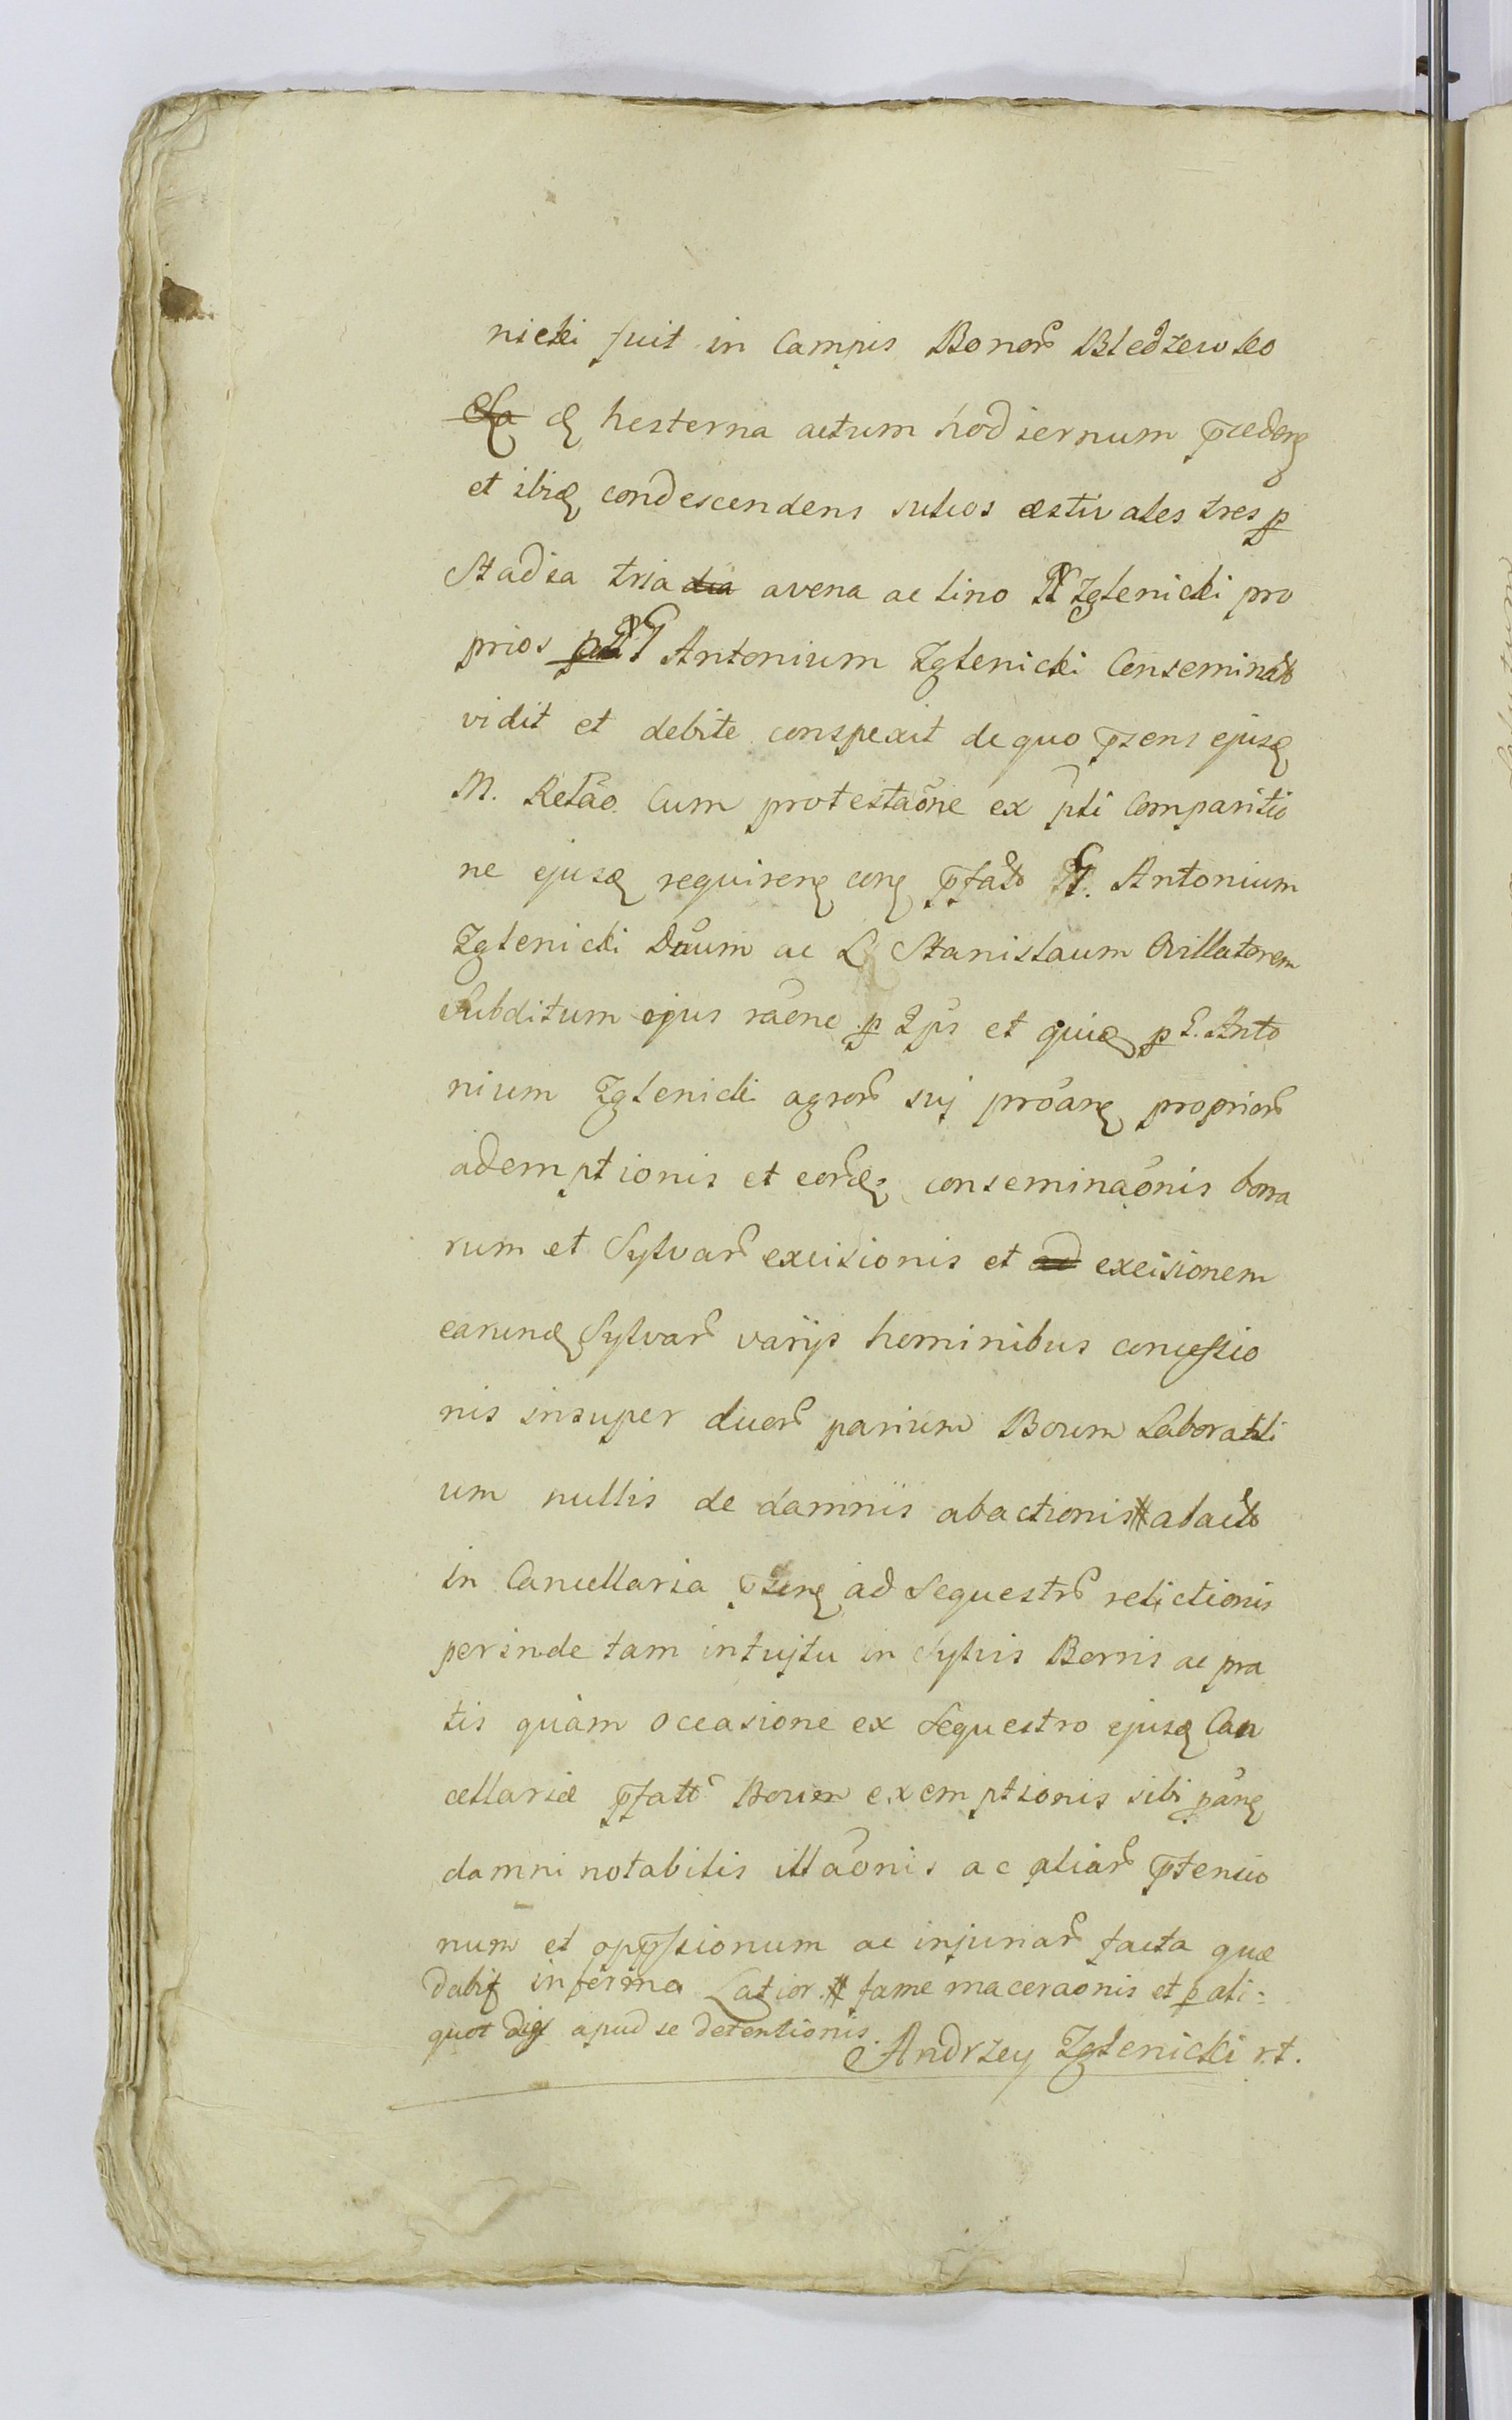 nicki fuit in Campis Bonor Bledzewko
hesterna actum hodiernum pcedeng
et ibiq condescendens sulcos æstivales tres p
Stadia tria avena ac lino Zglenicki pro
prios Antonium Zglenicki Conseminato
vidit et debite conspexit de quo psens ejusq
M. Relao Cum protestaone ex pti Comparitio
ne ejusq requireng cong pfato G. Antonium
Zglenicki Dnum ac L Stanislaum Ovillatorem
Subditum ejus raone p Ips et quiq p G. Anto
nium Zglenicki agror suj proang proprior
ademptionis et eorq conseminaonis borra
rum et Sylvar excisionis et excisionem
earunq Sylvar varijs hominibus concessio
nis insuper duor parium Boum Laborabili
um nullis de damnis abactionis # abacto
in Cancellaria pseng ad Sequestr relictionis
perinde tam intujtu in Sylvis Borris ac pra
tis quàm occasione ex Sequestro ejusq Can
cellariæ pfatt Boum exemptionis sibi pang
damni notabilis illaonis ac aliar ptensio
num et oppssionum ac injuriar facta quæ
dabit in forma Latior. # fame maceraonis et p ali:
quot apud se detentionis.
Andrzey Zglenicki r.t.